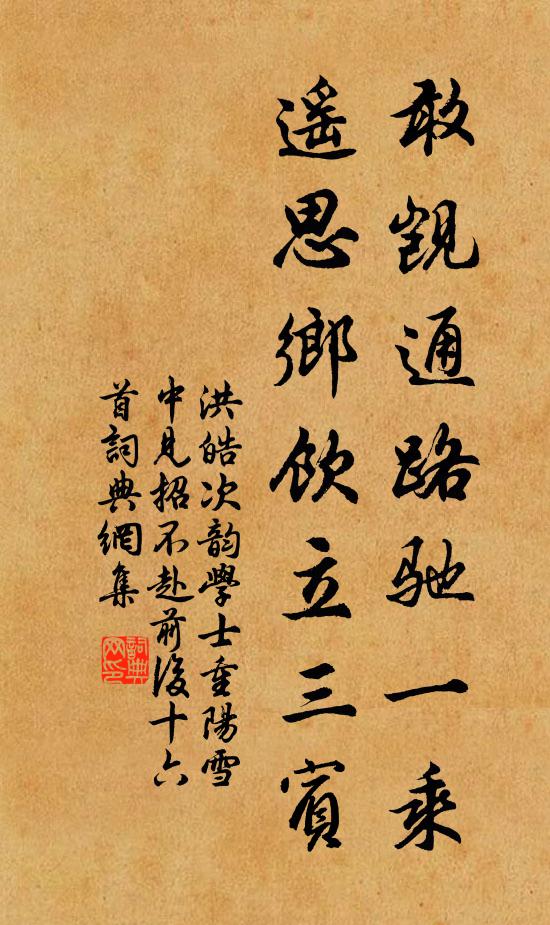 敢覬通路馳一乘
遥思鄉飲立三賓
洪皓次韵學士重陽雪
中見招不赴前後十六
首詞典網集
詞典
网印